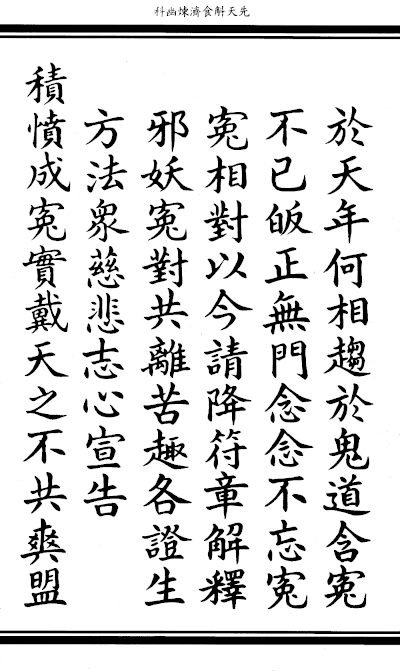 先天斛食濟煉幽科
於天年何相趨於鬼道含冤
不已皈正無門念念不忘冤
冤相對以今請降符章解釋
邪妖冤對共離苦趣各證生
方法眾慈悲志心宣告
積憤成冤實戴天之不共爽盟